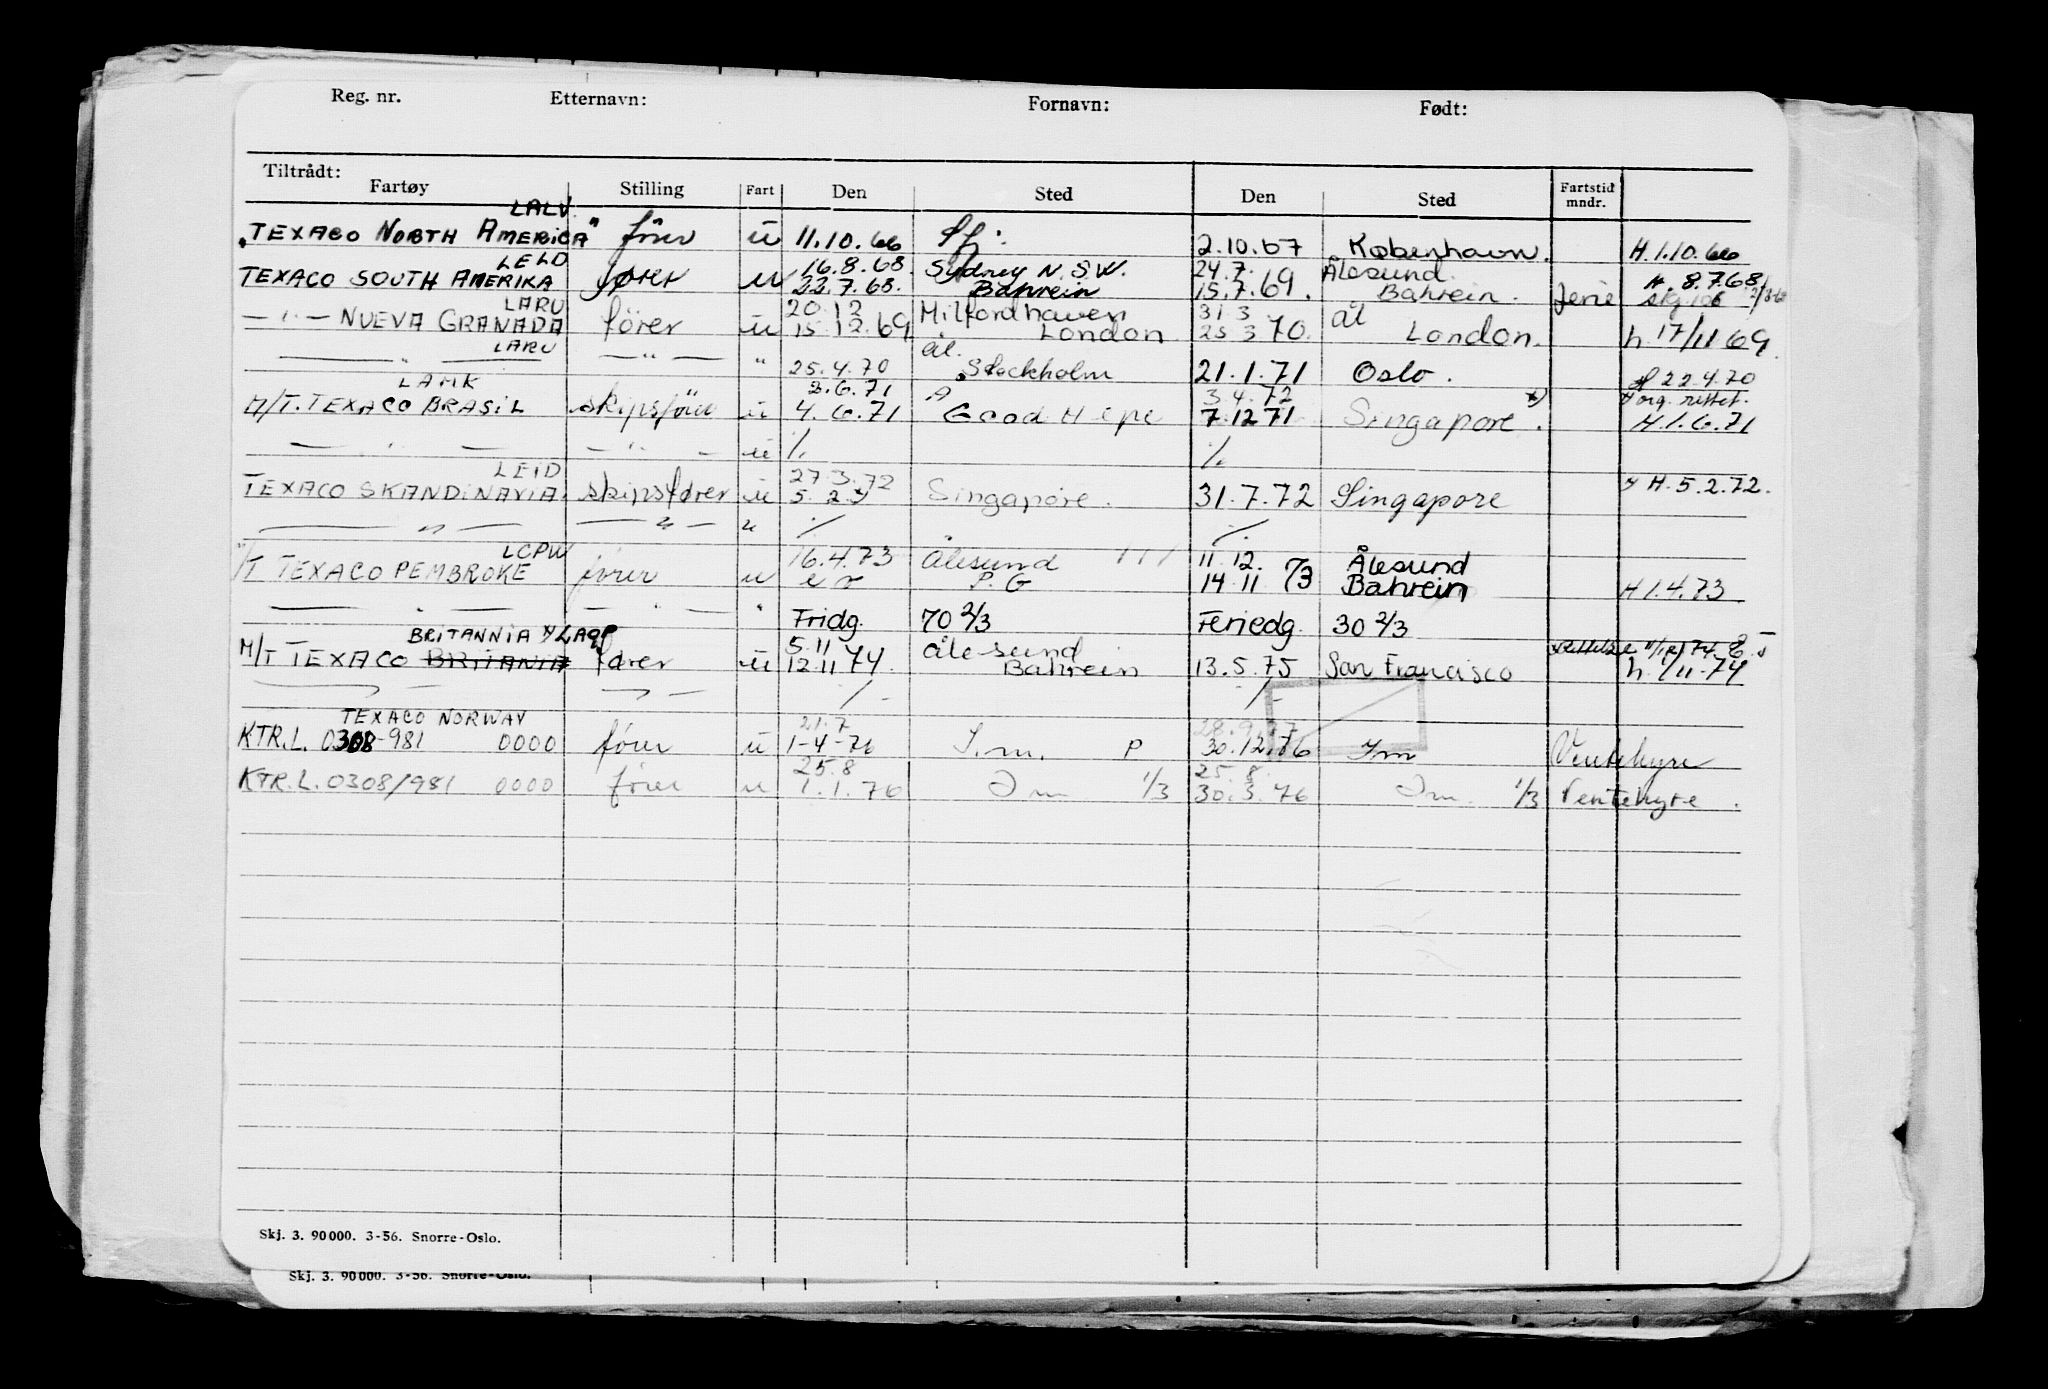 Reg. nr. Etternavn: Fornavn: Født:
Tiltrådt:
Fartøy Stilling Fart Den Sted Den Sted Fartstid mndr.
LALV.
"TEXACO NORTH AMERICA" förer ü 11.10.66 2.10.67 København. H 1.10.66
LELD 16.8.68. Sydney N.S.W. 24.7. Ålesund. H. 8.7.68
TEXACO SOUTH AMERIKA fører u 22.7.68. Bahrein 15.7.69. Bahrein. ferie
LARU 20.12 Milfordhaven 31 3 ål
— " — NUEVA GRANADA förer ü 15.12.69 London 25 3 70. London. h. 17/11 69.
LARU ål.
— " — — " — " 25.4.70 Stockholm 21.1.71 Oslo. H 22.4.70
LAMK 3.6.71 3 4.72
M/T. TEXACO BRASIL skipsförer ü 4.6.71 Good Hope 7.12 71 Singapore. H.1.6.71
— " — — " — ü ./. ./.
LEID 27.3.72
TEXACO SKANDINAVIA. skipsfører ü 5.2. Singapore. 31.7.72 Singapore H.5.2.72.
— " — — " — u ./. ./.
LCPW 16.4.73 Ålesund 11.12. Ålesund
T TEXACO PEMBROKE fører u P.G 14 11 73 Bahrein H 1.4.73
— " — — " — " Fridg. 70 2/3 Feriedg. 30 2/3
BRITANNIA LAQP 5.11 ålesund
M/T TEXACO BRITANIA fører ü 12.11 74. Bahrein 13.5.75 San Francisco h. 1/11-74
— " — — " — ./. ./.
TEXACO NORWAY 21.7 28.9.77
KTR.L. 0308-981 0000 förer ü 1-4-76 I.m. P 30.12.76 Im Ventehyre
25.8 25.8.
KTR.L. 0308/981 0000 förer u 1.1.76 Im 1/3 30.3.76 Im. 1/3 Ventehyre.
Skj. 3. 90000. 3-56. Snorre-Oslo.
Skj. 3. 90000. 3-56. Snorre-Oslo.